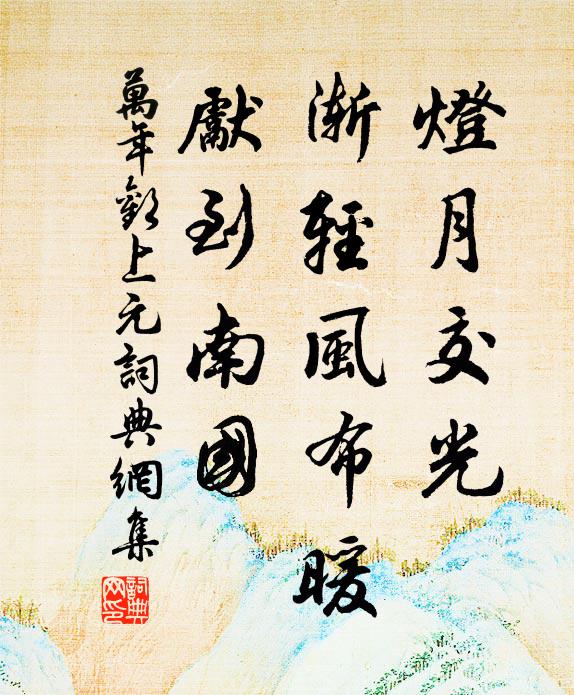 燈月交光
漸輕風布暖
獻到南國
萬年歡上元詞典網集
詞典网印